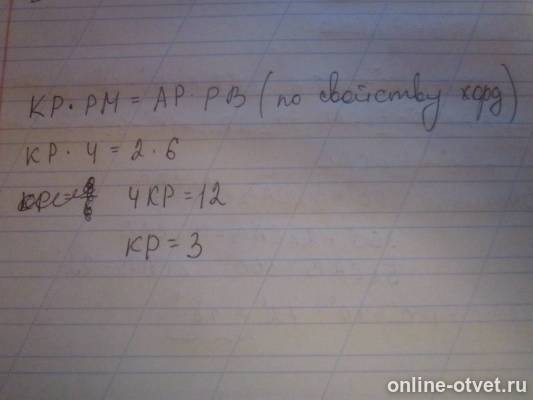 KP · PM = AP · PB (по свойству хорд)
KP · 4 = 2 · 6
4KP = 12
KP = 3
online-otvet.ru